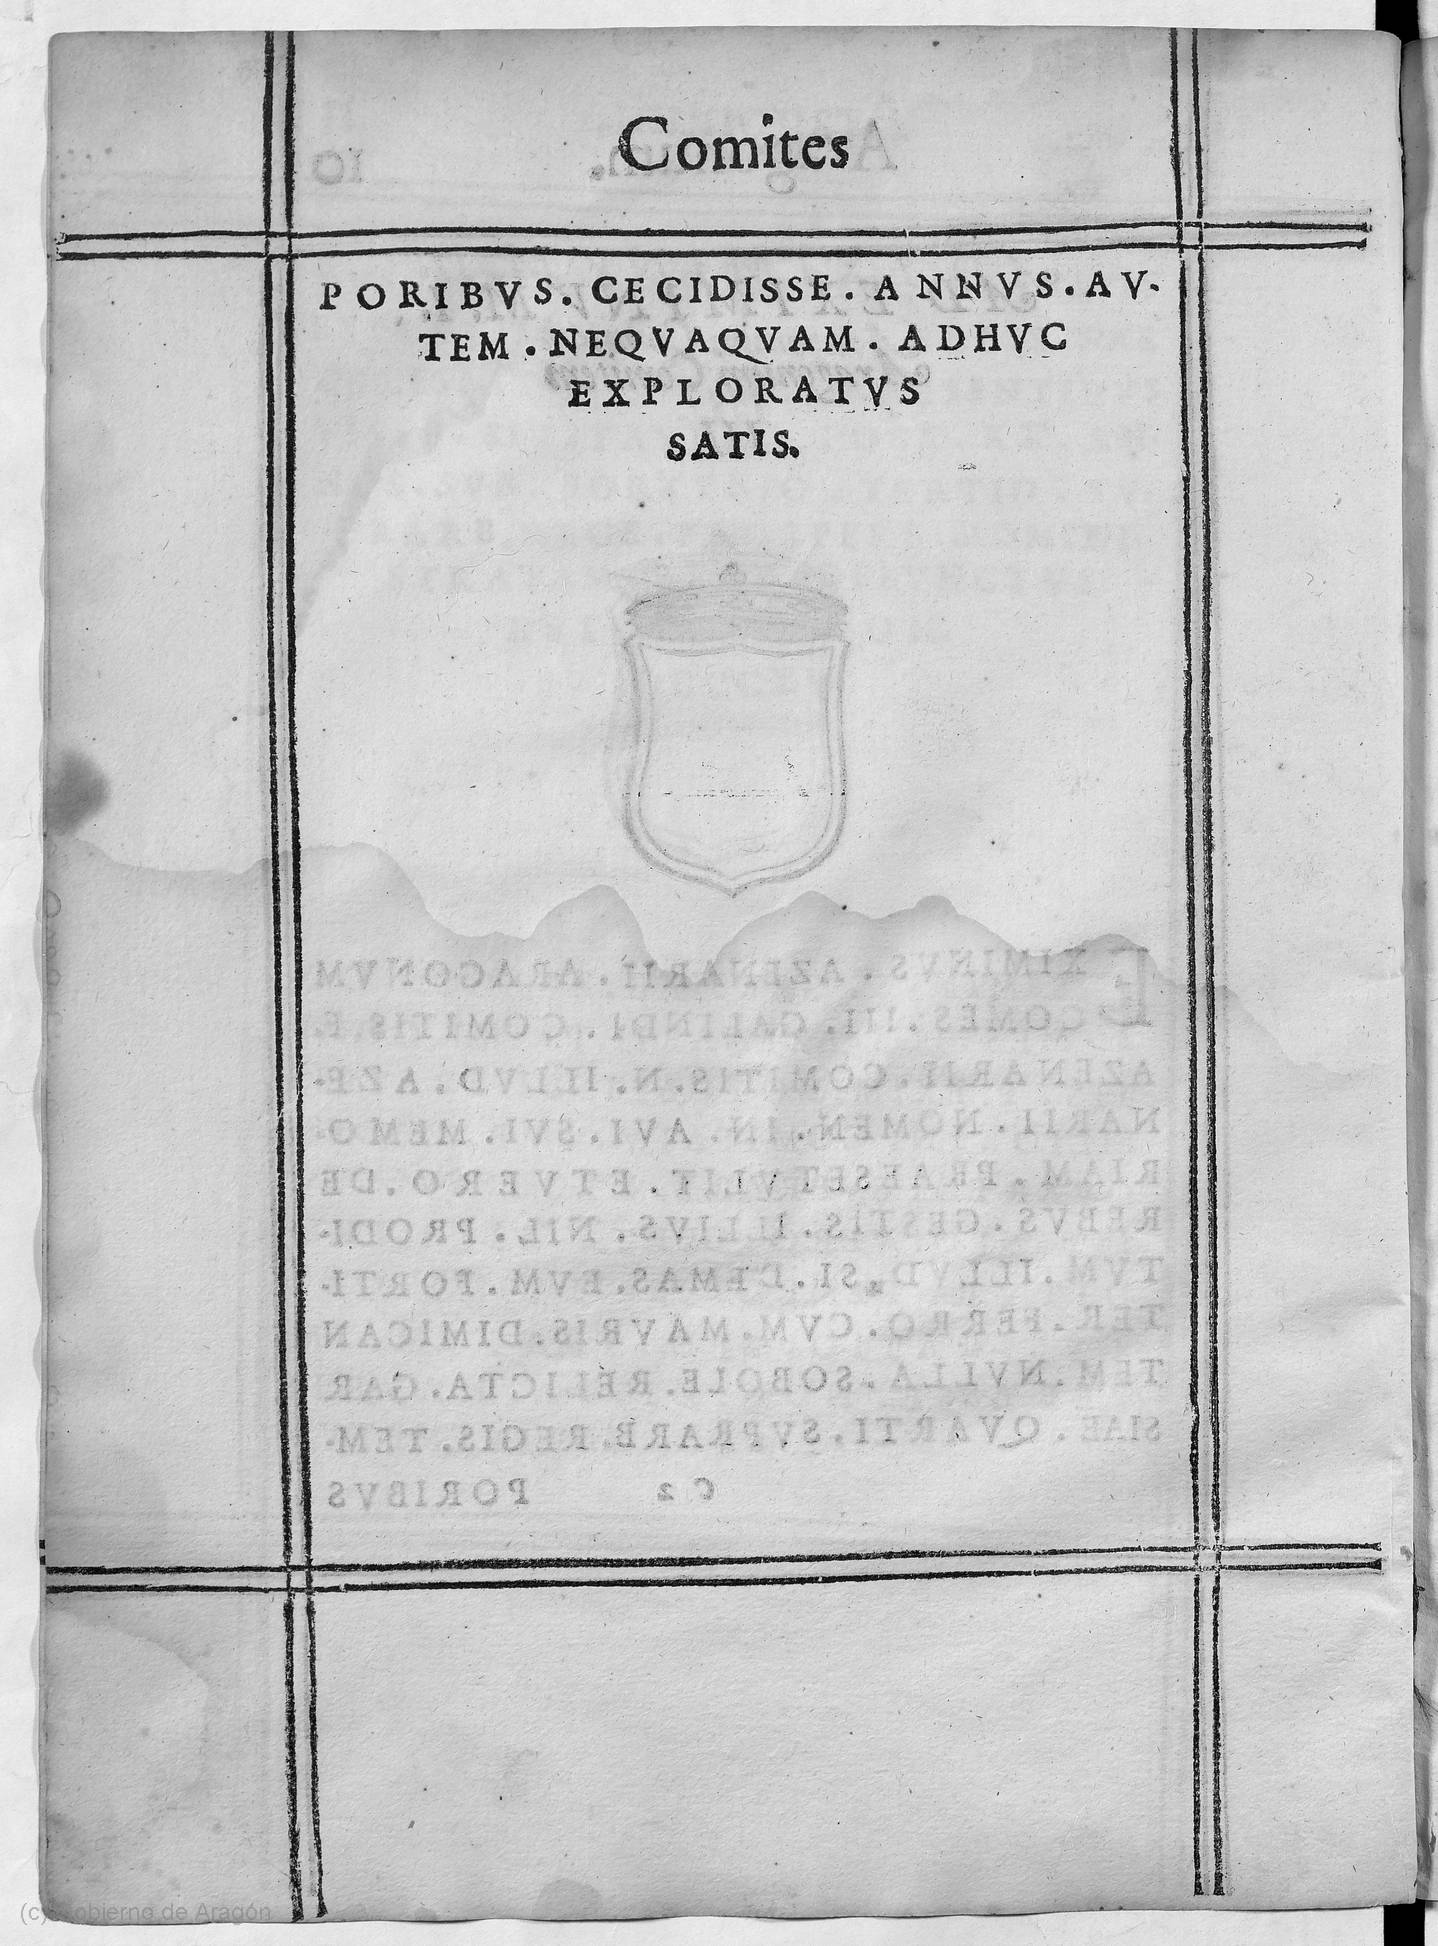 Comites
PORIBVS. CECIDISSE. ANNVS. AV-
TEM. NEQVAQVAM. ADHVC
EXPLORATVS
SATIS.
(c) Gobierno de Aragón